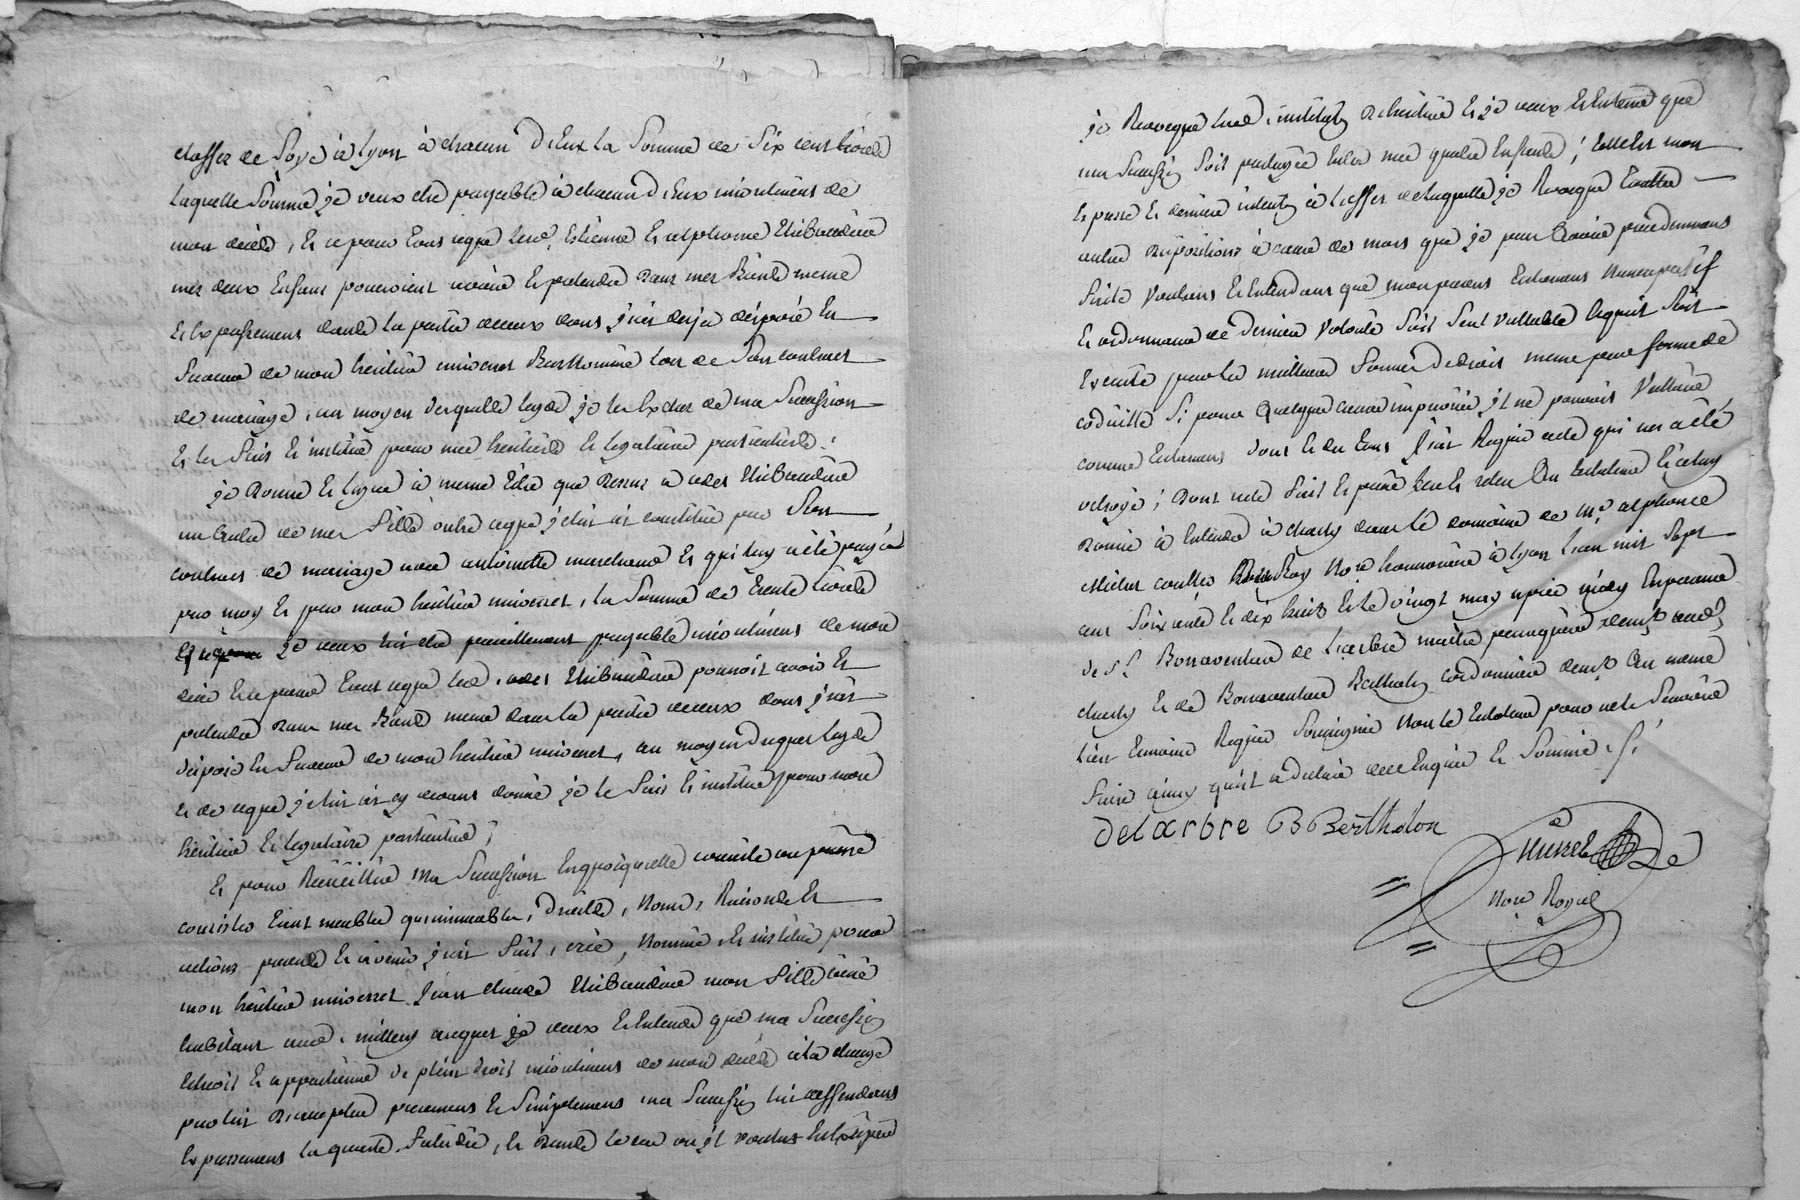 etoffes de Soye à Lyon à chacun d'Eux la Somme de Six cent livres
laquelle Somme je veux etre payable à chacun d'Eux incontinent de
mon deces, Et ce pour tous ce que led. Estienne Et alphonse thibaudier
mes deux Enfans pourroient avoir Et pretendre dans mes Biens meme
Et Expressement dans la partie de ceux dont j'ai deja disposé En
faveur de mon heritier universel Barthelemie lors de Son contract
de mariage, au moyen desquelles legs je les Exclus de ma Succession
Et les fais Et institue pour mes heritiers Et legataires particuliers;
je donne Et legue à meme titre que dessus a thibaudier
un autre de mes fills outre ce que je lui ai constitué par Son
contract de mariage avec antoinette marchand Et qui luy a été payé
par moy Et par mon heritier universel, la Somme de trente livres
je veux lui etre pareillement payable incontinent de mon
deces Et ce pour tous ce que led. thibaudier pourroit avoir Et
pretendre dans mes Biens meme dans la partie de ceux dont j'ai
disposé En faveur de mon heritier universel, au moyen duquel legs
Et de ce que je lui ai cy devant donné je le fais Et institue pour mon
heritier Et legataire particulier;
Et pour Recueillir Ma Succession En quoiqu'elle consiste ou puisse
consister tant meubles qu'immeubles, droits, Noms, Raisons Et
actions presents Et à venir j'ai fait, créé, Nommé, Et institué pour
mon heritier universel Jean claude thibaudier mon fills ainé
habitant aud. millery auquel je veux Et Entends que ma Succession
Echoit Et appartienne de plein droit incontinent de mon deces à la charge
par lui d'accepter purement Et Simplement ma Succession lui deffendant
Expressement la quarte falcidie, Et dans le cas où il voulut
je Revoque lad. institution d'heritier Et je veux Et Entend que
ma Succession Soit partagée Entre mes quatre Enfants; telle Est mon
Expresse Et derniere intention à l'effet de laquelle je Revoque toutes
autres dispositions à cause de mort que je peux avoir precedemment
faites Voulant Et Entendant que mon present testament Nuncupatif
Et ordonnance de derniere volonté Soit Seul vallable Et qu'il Soit
Executé par la meilleure forme de droit meme par forme de
codicille Si pour quelque cause imprevue il ne pouvoit Valloir
comme testament dont Et du tout j'ai Requis acte qui m'a été
octroyé; dont acte fait Et passé leu Et releu Au testateur Et à luy
donné à Entendre à charly dans le domaine de Mre alphonce
Michel Couttes Roy Nore honnoraire à Lyon L'an mil Sept
cent Soixante Et dix huit Et le vingt may après midy En presence
de Sr. Bonaventure de L'arbre maitre perruquier demt. aud.
charly Et de Bonaventure Bertholon cordonnier demt. Au meme
lieu temoins Requis Soussignés Non le testateur pour ne le Sçavoir
faire ainsy qu'il a declaré de ce Enquis Et Sommé
Delarbre B Bertholon
Nore Royal